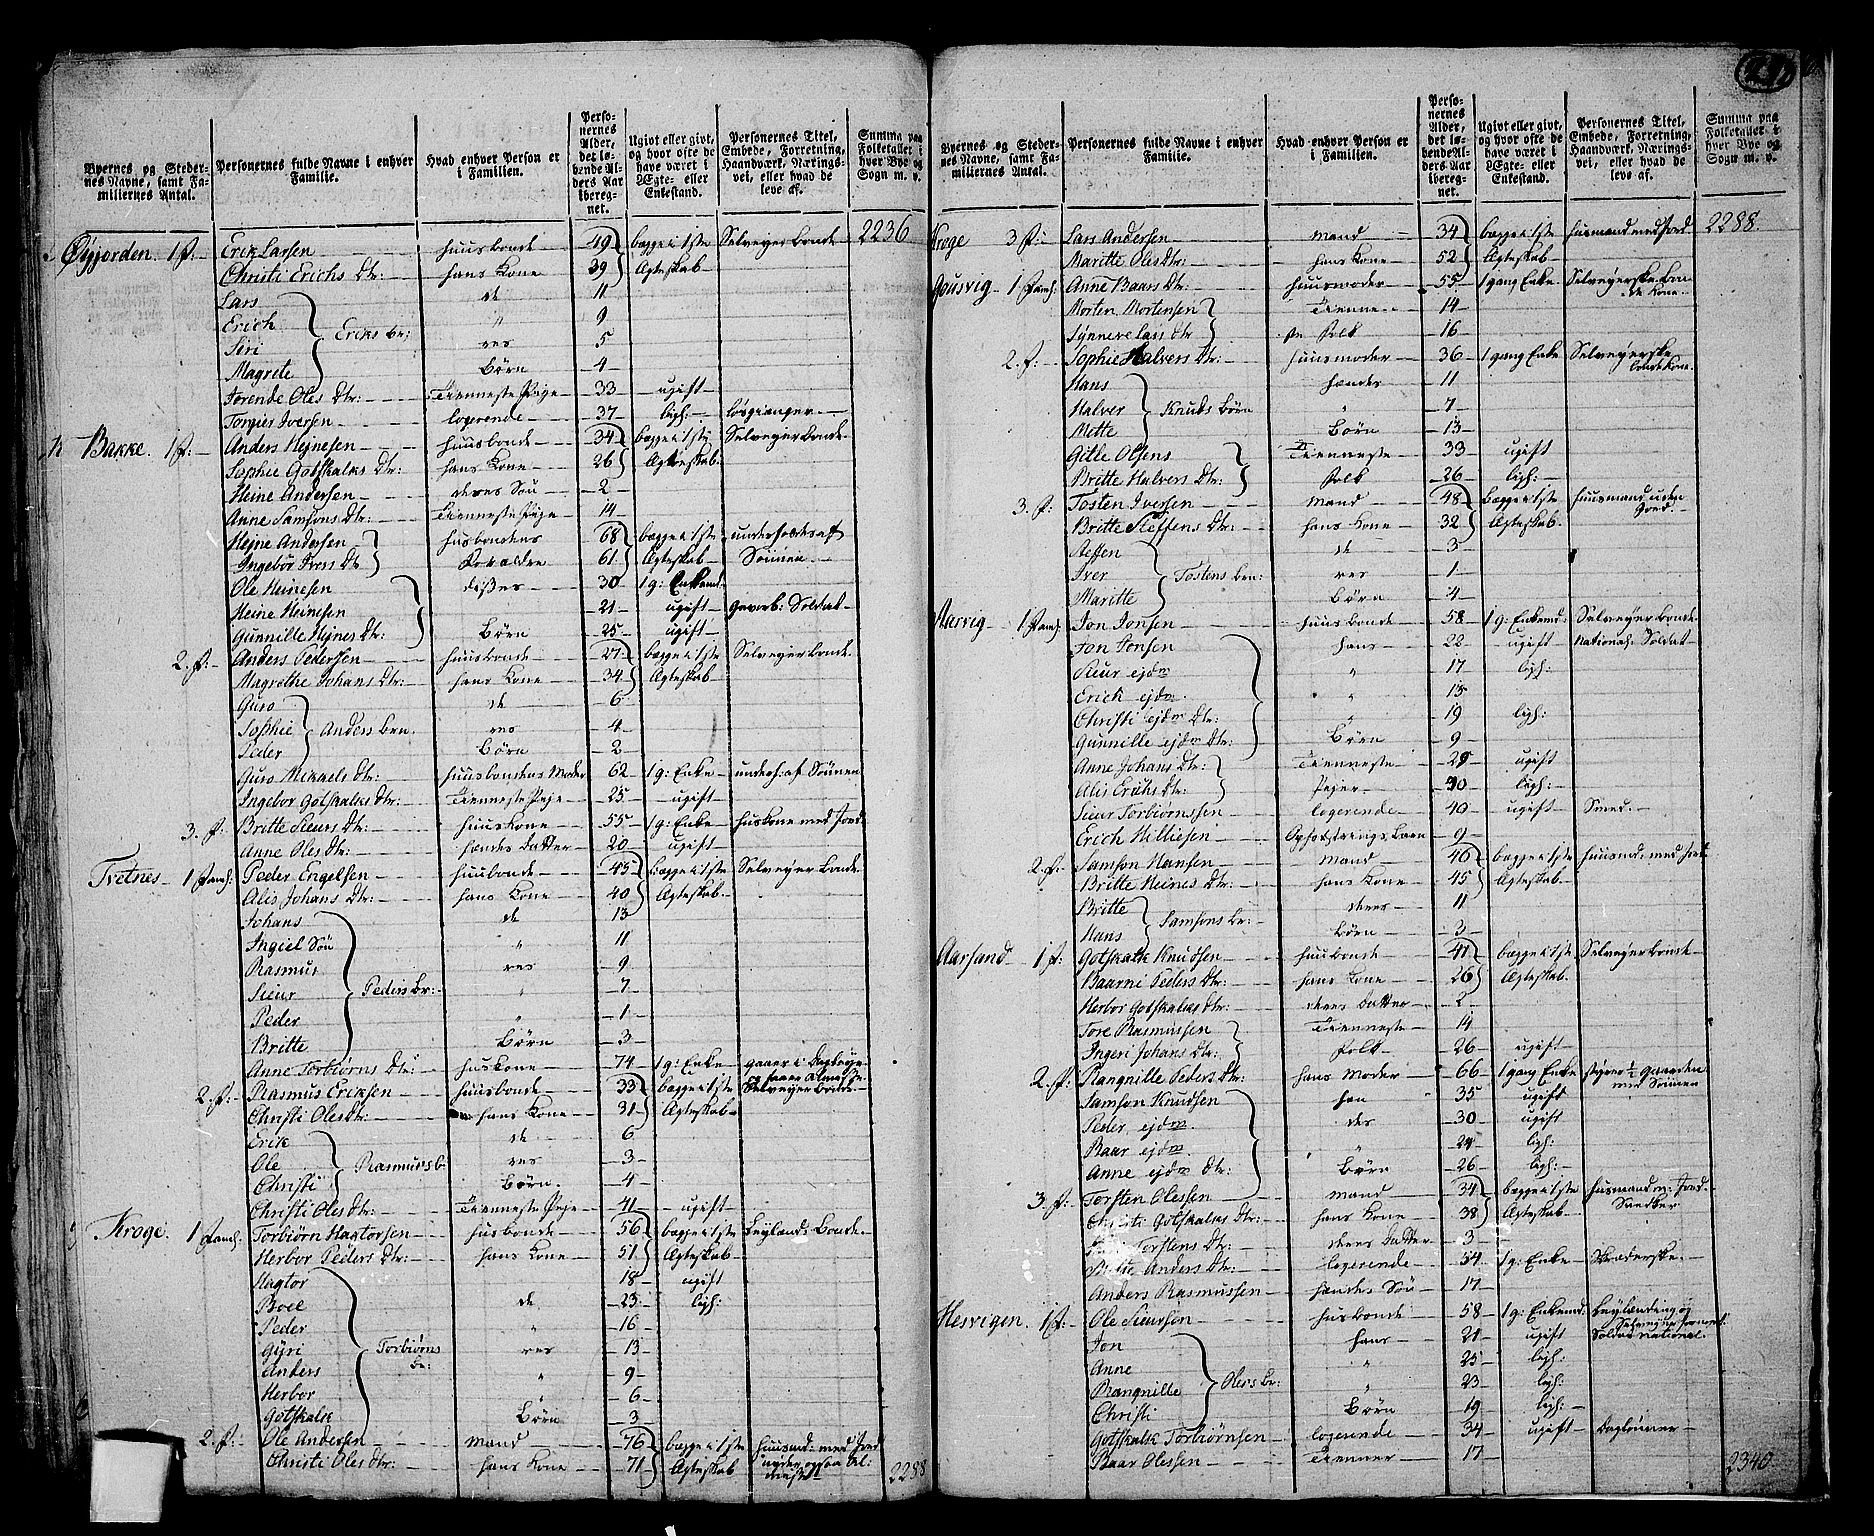 Byernes og Stedernes Navne, samt Familiernes Antal.
Personernes fulde Navne i enhver Familie.
Hvad enhver Person er i Familien.
Personernes Alder, det løbende Alders Aar iberegnet.
Ugivt eller givt, og hvor ofte de have været i Ægte- eller Enkestand.
Personernes Titel, Embede, Forretning, Haandværk, Næringsvei, eller hvad de leve af.
Summa paa Folketallet i hver Bye og Sogn m. v.
2236
Øyjorden 1 f: Erik Larsen huusbonde 49 begge i 1ste Selveyer bonde
Christi Erichs Dtr: hans Kone 39 Ægteskab
Lars de 11
Erich " 9
Eriks br:
Siri res 5
Magrete Børn 4
Torende Oles Dtr: Tienneste Pige 33 ugift
Torgies Iversen logerende 37 ligh:
Bakke 1 f: Anders Hejnesen huusbonde 34 begge i 1ste Selveyer Bonde
Sophie Gotskalks Dtr: hans Kone 26 Ægteskab
Heine Andersen deres Søn 2
Anne Samsons Dtr: Tienneste Pige 14
Hejne Andersen husbondens 68 begge i 1ste underholdes af
Ingebør Ivers Dtr 61 Ægteskab Sønnen
Ole Heinesen disses 30 1 g: Enkemd:
Heine Heinesen 21 ugift gevorb: Soldat
Gunnille Hejnes Dtr: Børn 25 ugift
2. f: Anders Pedersen huusbonde 27 begge i 1ste Selveyer bonde
Magrethe Johans Dtr: hans Kone 34 Ægteskab
Guro de 6
Sophie Anders brn. res 4
Peder Børn 2
Guro Mikkels Dtr: huusbondens Moder 62 1 g: Enke underh: af Sønnen
Ingebor Gotskalks Dtr: Tienneste Pige 25 ugift
3. f: Britte Sieurs Dtr: huuskone 55 1 g: Enke huskone med Jord
Anne Oles Dtr: hendes Datter 20 ugift
Tvetnes 1 Famh: Peder Engelsen huusbonde 43 begge i 1ste Selveyer Bonde
Alis Johans Dtr: hans Kone 40 Ægteskab
Johans de 13
Ingiel Søn " 11
Rasmus res 9
Sieur Peders br: " 7
Peder " 1
Britte Børn 3
Anne Torbiørns Dtr: huskone 74 1 g: Enke
2. f: Rasmus Eriksen huusbonde 33 begge i 1ste Selveyer bonde
Christi Oles Dtr: hans Kone 31 Ægteskab
Erik de 6
Ole Rasmus b: res 3
Christi Børn 4
Christi Oles Dtr: Tienneste Pige 41 ugift
Kroge 1 Famh: Torbiørn Hagtorsen husbonde 56 begge i 1ste Leylænds Bonde
Herbor Peders Dtr: hans Kone 51 Ægteskab
Hagtor 18 ugift
Boel de 23 ligh:
Peder " 16
Gÿri Torbiørns br: res 13
Anders " 9
Herbor " 6
Gotskalk Børn 3
2. f: Ole Andersen Mand 76 begge i 1ste huusmd: med Jord
Christi Oles Dtr: hans Kone 71 Ægteskab
2288
Byernes og Stedernes Navne, samt Familiernes Antal.
Personernes fulde Navne i enhver Familie.
Hvad enhver Person er i Familien.
Personernes Alder, det løbende Alders Aar iberegnet.
Ugivt eller givt, og hvor ofte de have været i Ægte- eller Enkestand.
Personernes Titel, Embede, Forretning, Haandværk, Næringsvei, eller hvad de leve af.
Summa paa Folketallet i hver Bye og Sogn m. v.
2288
Kroge 3 f: Lars Andersen Mand 34 begge i 1ste huusmand med Jord
Maritte Oles Dtr: hans Kone 52 Ægteskab
Gousvig 1 Famh: Anne Baars Dtr: huusmoder 55 1 gang Enke Selveyerske bonde Kone
Morten Mortensen Tienne 14
Synneve Lars Dtr ste Folk 16
2. f: Sophie Halvers Dtr: huusmoder 36 1 gang Enke Selveyerske bonde Kone
Hans hendes 11
Halver Knuds Børn " 7
Mette Børn 13
Gitle Olsens Tienneste 33 ugift
Britte Halvers Dtr: Folk 26 ligh:
3. f: Tosten Iversen Mand 48 begge i 1ste huusmand uden Jord
Britte Steffens Dtr: hans Kone 32 Ægteskab
Steffen de 3
Iver Tostens brn: res 1
Maritte Børn 4
Marvig 1 Famh: Jon Jonsen huusbonde 58 1 g: Enkemd: Selveyer bonde
Jan Jonsen hans 22 ugift National Soldat
Sieur ejdm " 17 ligh:
Erich ejdm. " 15
Christi ejdm Dtr: " 19 ligh:
Gunnille ejdm Dtr: Børn 9
Anne Johans Dtr: Tienneste 29 ugift
Alis Erichs Dtr: Pejer 30 ligh:
Sieur Torbiørnssen logerende 40 ugift Smed.
Erich Hilliesen Opfostrings barn 9
2. f: Samson Hansen Mand 46 begge i 1ste huusmd: med Jord
Britte Heines Dtr: hans Kone 45 Ægteskab
Britte deres 11
Samsons br:
Hans Børn 3
Aarsand 1 f: Gotskalk Knudsen huusbonde 41 begge i 1ste Selveyer bonde
Baarni Peders Dtr: hans Kone 26 Ægteskab
Herbor Gotskalks Dtr: deres Datter 2
Tore Rasmussen Tienneste 14
Ingeri Johans Dtr: Folk 26 ugift
2. f: Rangnille Peders Dtr: hans Moder 66 1 gang Enke styrer ½ gaarden med Sønnen
Samson Knudsen hen 35 ugift
Peder ejdm. des 30 ugift
Baar ejdm. " 24 ligh:
Anne ejdm Dtr: Børn 26 ligh:
3. f: Torsten Olessen Mand 34 begge i 1ste huusmand m: Jord
Christi Gotskalks Dtr: hans Kone 38 Ægteskab
Torstens Dtr: deres Datter 3
Mette Anders Dtr: logerende 54 1 g: Enke
Anders Rasmussen hendes Søn 17
Hesvigen 1 f: Ole Sieursen huusbonde 58 1 g: Enkemd: Leylænding og
Jon hans 21 ugift Soldat national
Anne " 25 ligh:
Rangnille Oles br: " 23 ligh:
Christi Børn 19 ligh:
Gotskalk Torbiørnsen logerende 34 ugift Dagleinner
Baar Olessen Tienner 17
2340